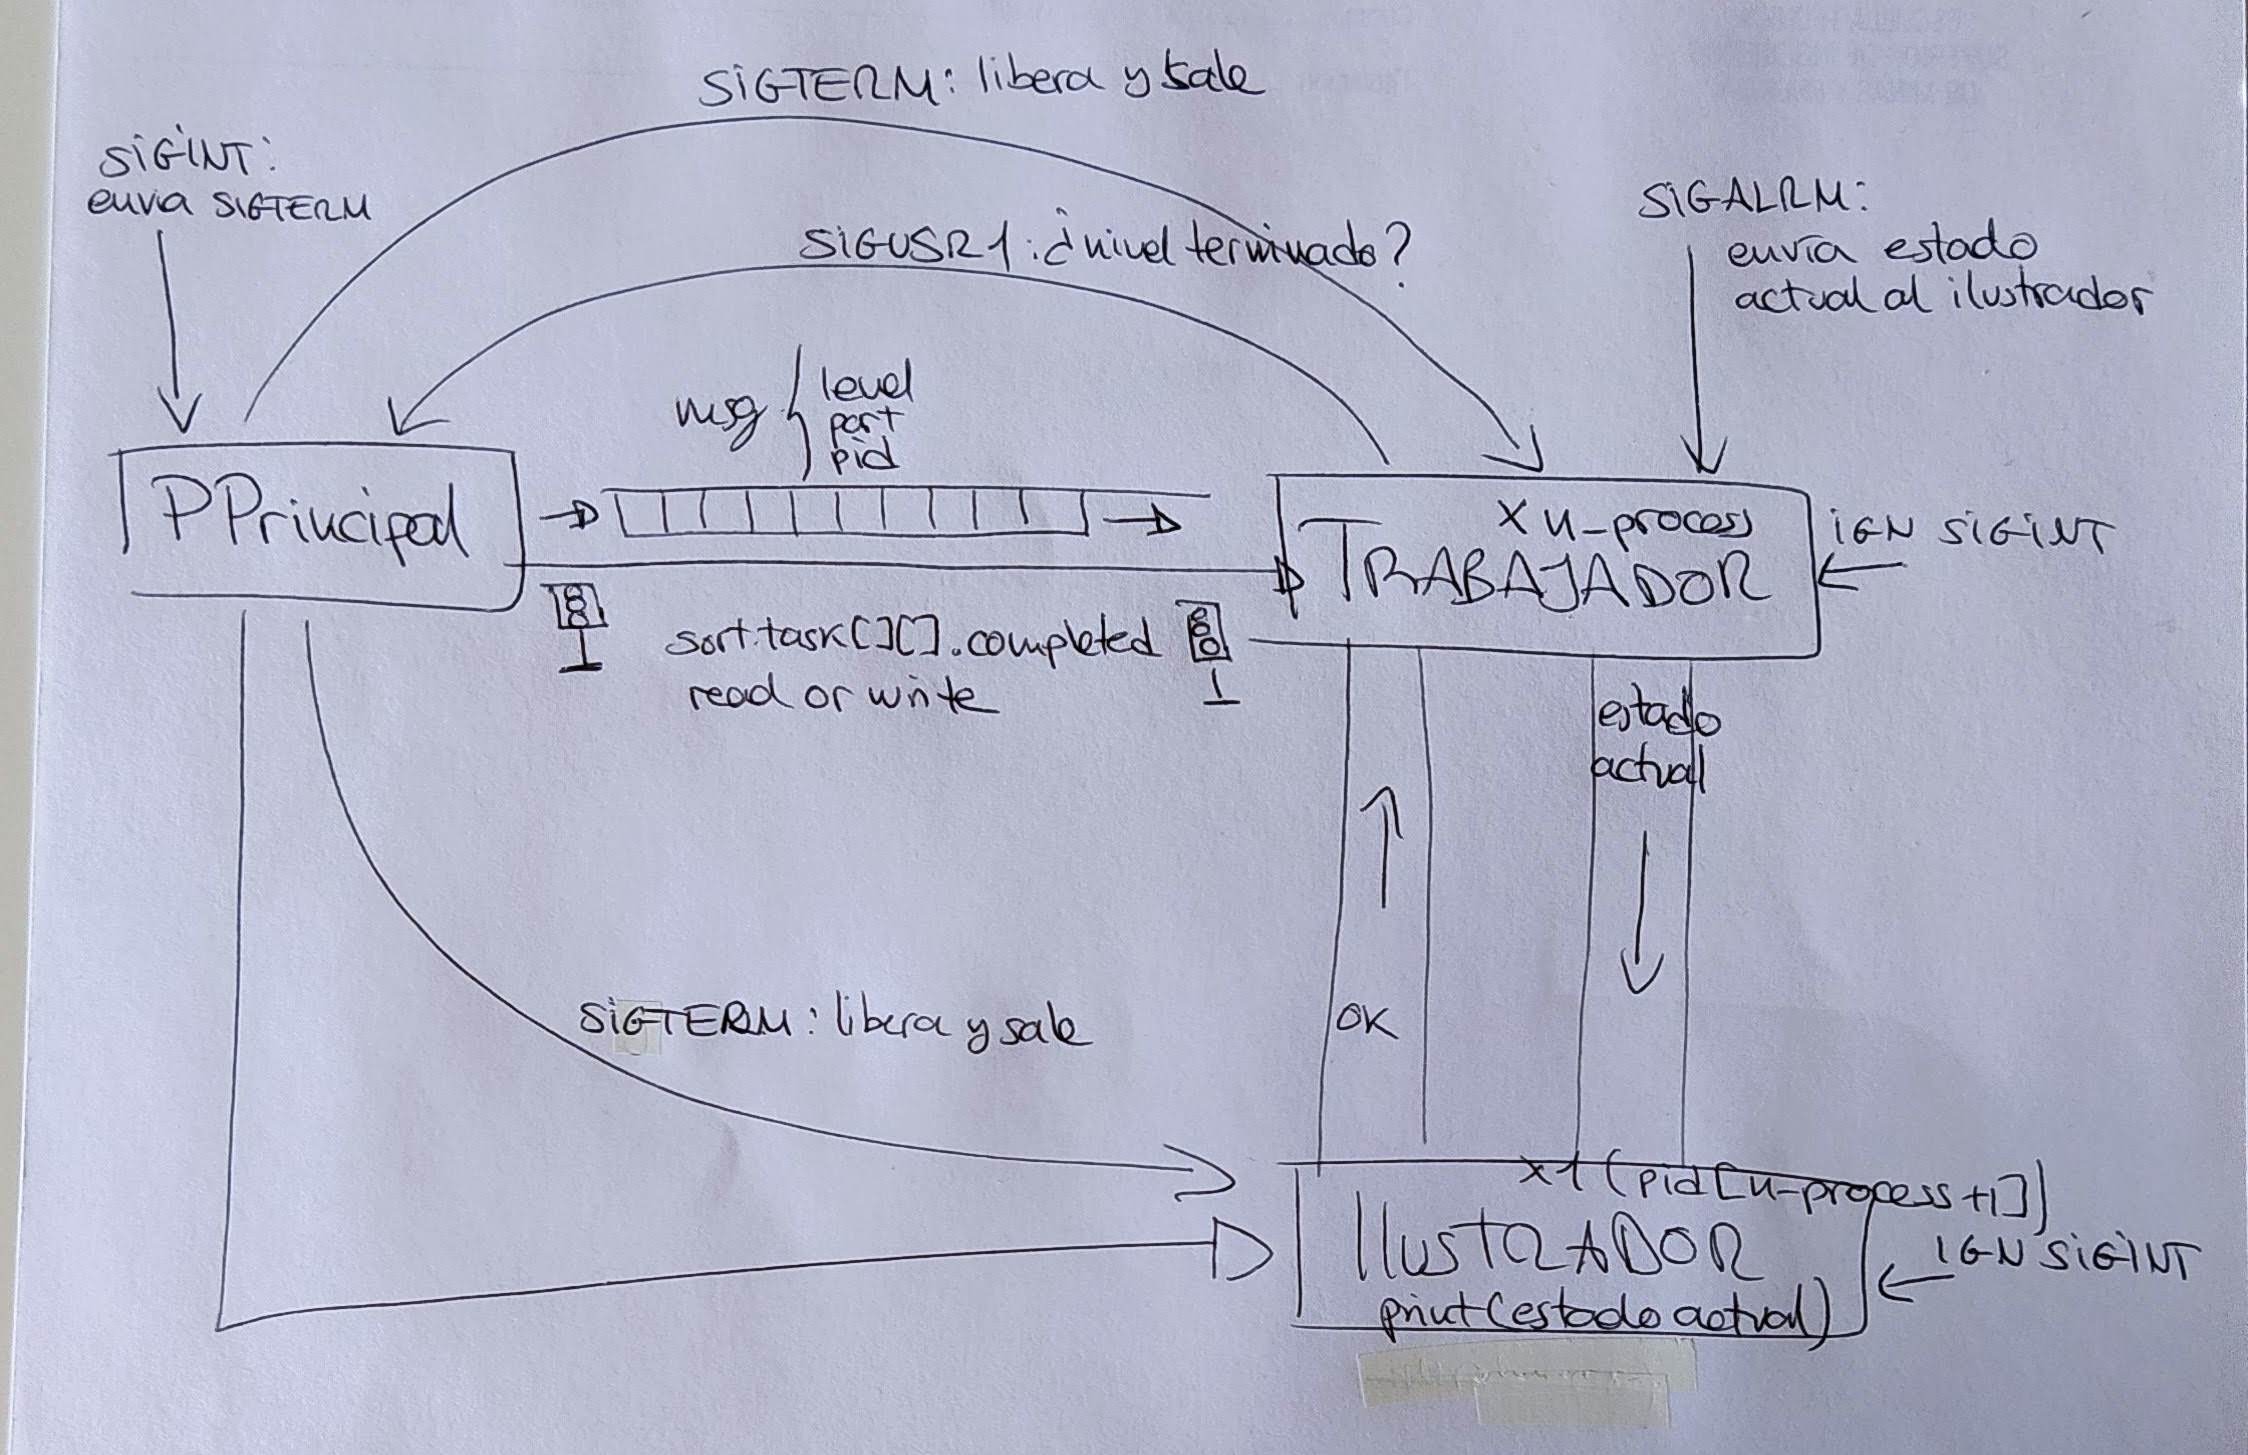 SIGTERM: libera y sale
SIGINT:
envia SIGTERM
SIGUSR1: ¿nivel terminado?
SIGALRM:
envía estado
actual al ilustrador
msg
level
part
pid
PPrincipal
x n-process
TRABAJADOR
IGN SIGINT
sort.task[][].completed
read or write
estado
actual
SIGTERM: libera y sale
OK
x1 (pid[n-process+1])
IlustRADOR
print(estado actual)
IGN SIGINT